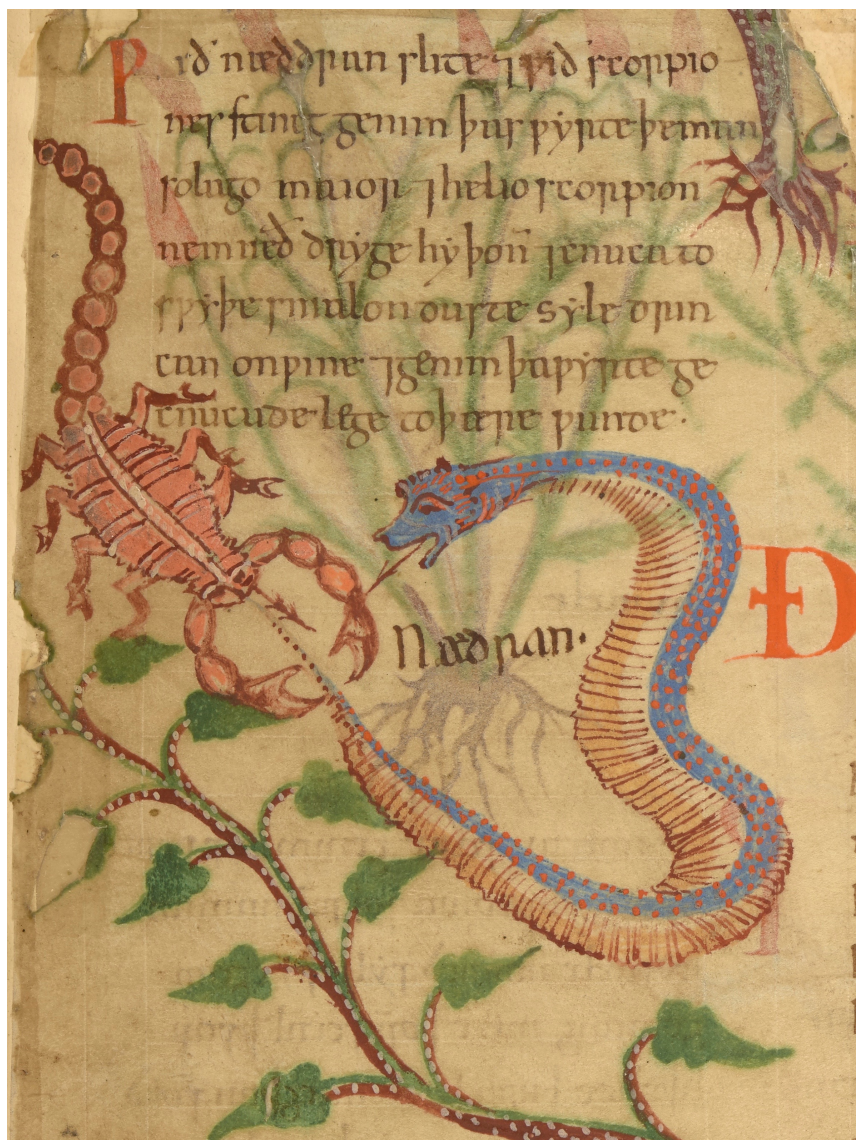 Ƿið næddran slite ⁊ ƿið scorpio
nes stincg genim þas ƿyrte þe man
solago maior ⁊ helioscorpion
nemneð dryge hy þoñ ⁊ cnuca to
sƿyþe smalon duste syle drin
can on ƿine ⁊ genim þa ƿyrte ge
cnucude lege to þære ƿunde·
Nædran·
Ð